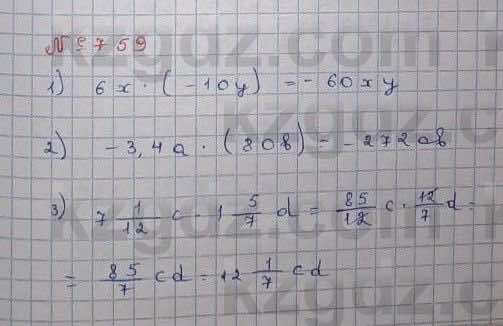 № 759
1) 6x · (-10y) = -60xy
2) -3,4a · (80b) = -272ab
3) 7 1/12 c · 1 5/7 d = 85/12 c · 12/7 d =
= 85/7 cd = 12 1/7 cd
kzgdz.com